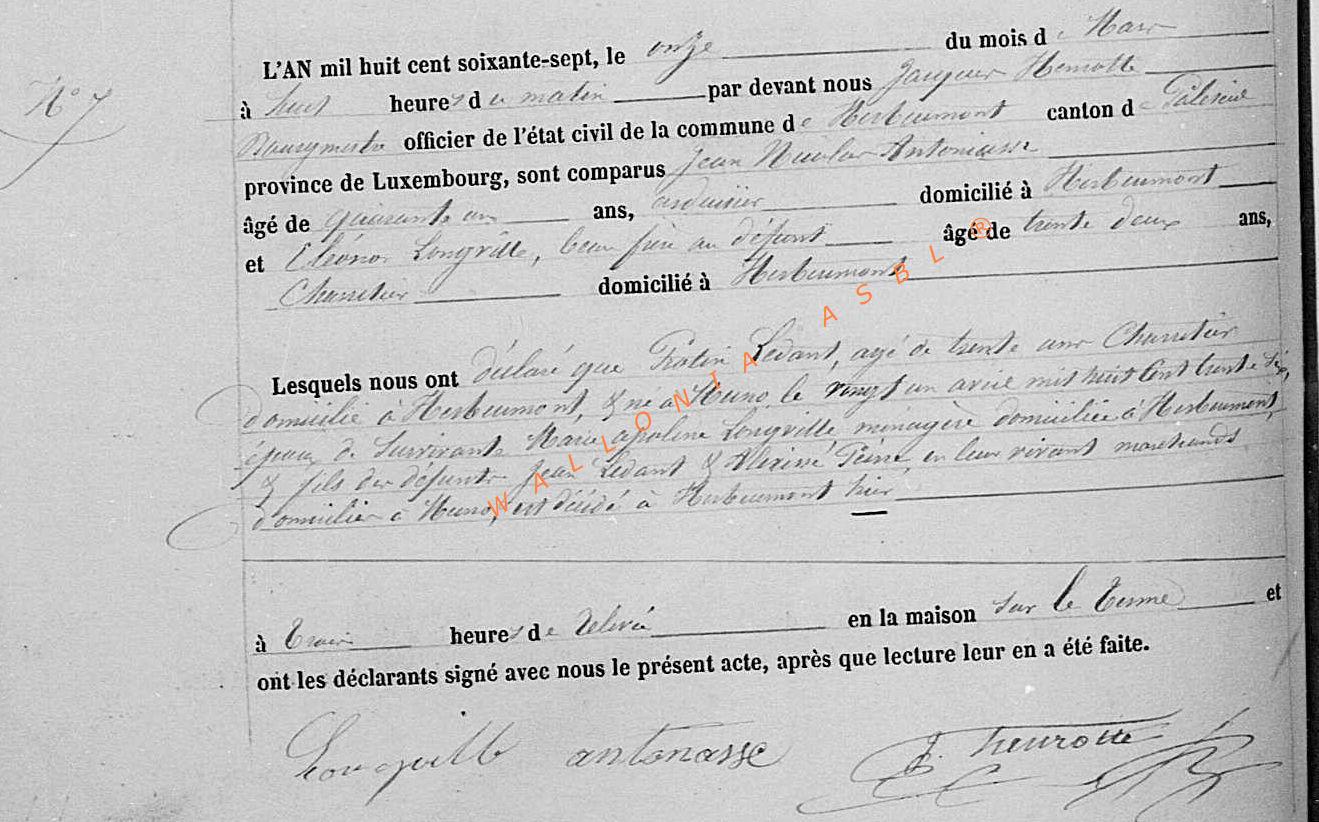 N° 7
L'AN mil huit cent soixante-sept, le onze du mois de Mars
à huit heures de matin par devant nous Jacques Henrotte
Bourgmestre officier de l'état civil de la commune de Herbeumont canton de Paliseul
province de Luxembourg, sont comparus Jean Nicolas Antoniasse
âgé de quarante un ans, ardoisier domicilié à Herbeumont
et Eléonor Longville, beau frère au défunt âgé de trente deux ans,
Charretier domicilié à Herbeumont
Lesquels nous ont déclaré que Ledant, agé de trente ans Charretier
domicilié à Herbeumont, & né à Muno, le vingt un avril mil huit Cent trente six,
époux de Survivante Marie apoline Longville ménagère domiciliée à Herbeumont,
& fils des défunts Jean Ledant & en leur vivant marchands
domiciliés à Muno, est décédé à Herbeumont hier
à Trois heures de Relevée en la maison sur le Terme et
ont les déclarants signé avec nous le présent acte, après que lecture leur en a été faite.
Longville antonasse J. henrotte
WALLONIA ASBL ®